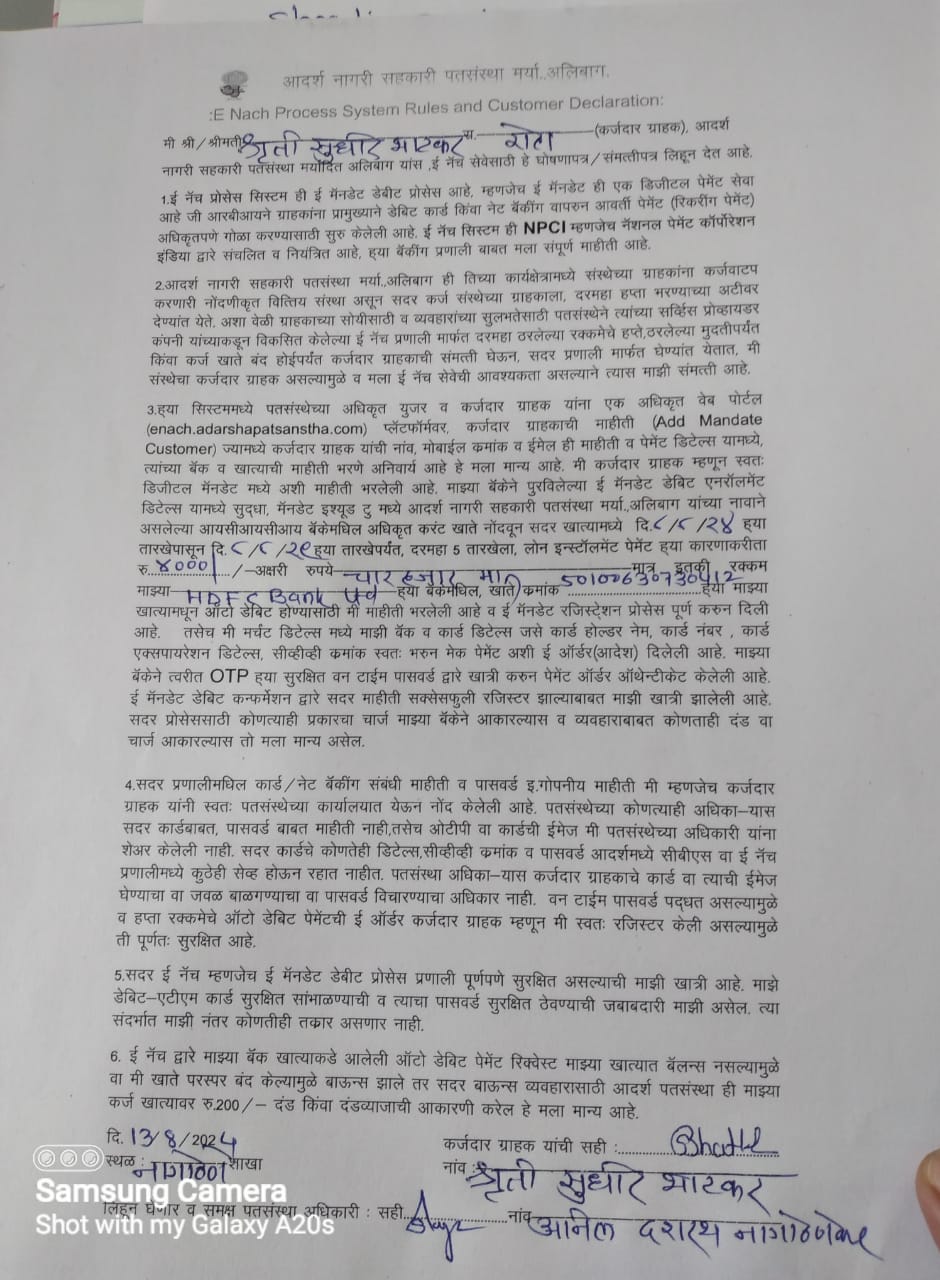 आदर्श नागरी सहकारी पतसंस्था मर्या.,अलिबाग.
:E Nach Process System Rules and Customer Declaration:
मी श्री/श्रीमती श्रृती सुधीर भाटकर रा. रोहा (कर्जदार ग्राहक), आदर्श
नागरी सहकारी पतसंस्था मर्यादित अलिबाग यांस ,ई नॅच सेवेसाठी हे घोषणापत्र/संमत्तीपत्र लिहून देत आहे.
1.ई नॅच प्रोसेस सिस्टम ही ई मॅनडेट डेबीट प्रोसेस आहे, म्हणजेच ई मॅनडेट ही एक डिजीटल पेमेंट सेवा
आहे जी आरबीआयने ग्राहकांना प्रामुख्याने डेबिट कार्ड किंवा नेट बॅकींग वापरुन आवर्ती पेमेंट (रिकरींग पेमेंट)
अधिकृतपणे गोळा करण्यासाठी सुरु केलेली आहे. ई नॅच सिस्टम ही NPCI म्हणजेच नॅशनल पेमेंट कॉर्पोरेशन
इंडिया द्वारे संचलित व नियंत्रित आहे, ह्या बॅकींग प्रणाली बाबत मला संपूर्ण माहीती आहे.
2.आदर्श नागरी सहकारी पतसंस्था मर्या.,अलिबाग ही तिच्या कार्यक्षेत्रामध्ये संस्थेच्या ग्राहकांना कर्जवाटप
करणारी नोंदणीकृत वित्तिय संस्था असून सदर कर्ज संस्थेच्या ग्राहकाला, दरमहा हप्ता भरण्याच्या अटीवर
देण्यांत येते. अशा वेळी ग्राहकाच्या सोयीसाठी व व्यवहारांच्या सुलभतेसाठी पतसंस्थेने त्यांच्या सर्व्हिस प्रोव्हायडर
कंपनी यांच्याकडून विकसित केलेल्या ई नॅच प्रणाली मार्फत दरमहा ठरलेल्या रक्कमेचे हप्ते,ठरलेल्या मुदतीपर्यंत
किंवा कर्ज खाते बंद होईपर्यंत कर्जदार ग्राहकाची संमत्ती घेऊन, सदर प्रणाली मार्फत घेण्यांत येतात, मी
संस्थेचा कर्जदार ग्राहक असल्यामुळे व मला ई नॅच सेवेची आवश्यकता असल्याने त्यास माझी संमत्ती आहे.
3.ह्या सिस्टममध्ये पतसंस्थेच्या अधिकृत युजर व कर्जदार ग्राहक यांना एक अधिकृत वेब पोर्टल
(enach.adarshapatsanstha.com) प्लॅटफॉर्मवर, कर्जदार ग्राहकाची माहीती (Add Mandate
Customer) ज्यामध्ये कर्जदार ग्राहक यांची नांव, मोबाईल कमांक व ईमेल ही माहीती व पेमेंट डिटेल्स यामध्ये,
त्यांच्या बॅक व खात्याची माहीती भरणे अनिवार्य आहे हे मला मान्य आहे. मी कर्जदार ग्राहक म्हणून स्वतः
डिजीटल मॅनडेट मध्ये अशी माहीती भरलेली आहे. माझ्या बॅकेने पुरविलेल्या ई मॅनडेट डेबिट एनरॉलमेंट
डिटेल्स यामध्ये सुद्धा, मॅनडेट इश्यूड टु मध्ये आदर्श नागरी सहकारी पतसंस्था मर्या.,अलिबाग यांच्या नावाने
असलेल्या आयसीआयसीआय बॅकेमधिल अधिकृत करंट खाते नोंदवून सदर खात्यामध्ये दि. ८/८/२४ ह्या
तारखेपासून दि. ८/८/२९ ह्या तारखेपर्यंत, दरमहा 5 तारखेला, लोन इन्स्टॉलमेंट पेमेंट ह्या कारणाकरीता
रु. ४०००/-अक्षरी रुपये चार हजार मात्र मात्र इतकी रक्कम
माझ्या HDFC Bank ह्या बॅकेमधिल, खाते कमांक 50100630730412 ह्या माझ्या
खात्यामधून ऑटो डेबिट होण्यासाठी मी माहीती भरलेली आहे व ई मॅनडेट रजिस्ट्रेशन प्रोसेस पूर्ण करुन दिली
आहे. तसेच मी मर्चंट डिटेल्स मध्ये माझी बॅक व कार्ड डिटेल्स जसे कार्ड होल्डर नेम, कार्ड नंबर , कार्ड
एक्सपायरेशन डिटेल्स, सीव्हीव्ही कमांक स्वतः भरुन मेक पेमेंट अशी ई ऑर्डर(आदेश) दिलेली आहे. माझ्या
बॅकेने त्वरीत OTP ह्या सुरक्षित वन टाईम पासवर्ड द्वारे खात्री करुन पेमेंट ऑर्डर ऑथेन्टीकेट केलेली आहे.
ई मॅनडेट डेबिट कन्फर्मेशन द्वारे सदर माहीती सक्सेसफुली रजिस्टर झाल्याबाबत माझी खात्री झालेली आहे.
सदर प्रोसेससाठी कोणत्याही प्रकारचा चार्ज माझ्या बॅकेने आकारल्यास व व्यवहाराबाबत कोणताही दंड वा
चार्ज आकारल्यास तो मला मान्य असेल.
4.सदर प्रणालीमधिल कार्ड/नेट बॅकींग संबंधी माहीती व पासवर्ड इ.गोपनीय माहीती मी म्हणजेच कर्जदार
ग्राहक यांनी स्वतः पतसंस्थेच्या कार्यालयात येऊन नोंद केलेली आहे. पतसंस्थेच्या कोणत्याही अधिका–यास
सदर कार्डबाबत, पासवर्ड बाबत माहीती नाही,तसेच ओटीपी वा कार्डची ईमेज मी पतसंस्थेच्या अधिकारी यांना
शेअर केलेली नाही. सदर कार्डचे कोणतेही डिटेल्स,सीव्हीव्ही कमांक व पासवर्ड आदर्शमध्ये सीबीएस वा ई नॅच
प्रणालीमध्ये कुठेही सेव्ह होऊन रहात नाहीत. पतसंस्था अधिका–यास कर्जदार ग्राहकाचे कार्ड वा त्याची ईमेज
घेण्याचा वा जवळ बाळगण्याचा वा पासवर्ड विचारण्याचा अधिकार नाही. वन टाईम पासवर्ड पद्धत असल्यामुळे
व हप्ता रक्कमेचे ऑटो डेबिट पेमेंटची ई ऑर्डर कर्जदार ग्राहक म्हणून मी स्वतः रजिस्टर केली असल्यामुळे
ती पूर्णतः सुरक्षित आहे.
5.सदर ई नॅच म्हणजेच ई मॅनडेट डेबीट प्रोसेस प्रणाली पूर्णपणे सुरक्षित असल्याची माझी खात्री आहे. माझे
डेबिट–एटीएम कार्ड सुरक्षित सांभाळण्याची व त्याचा पासवर्ड सुरक्षित ठेवण्याची जबाबदारी माझी असेल. त्या
संदर्भात माझी नंतर कोणतीही तकार असणार नाही.
6. ई नॅच द्वारे माझ्या बॅक खात्याकडे आलेली ऑटो डेबिट पेमेंट रिक्वेस्ट माझ्या खात्यात बॅलन्स नसल्यामुळे
वा मी खाते परस्पर बंद केल्यामुळे बाऊन्स झाले तर सदर बाऊन्स व्यवहारासाठी आदर्श पतसंस्था ही माझ्या
कर्ज खात्यावर रु.200/– दंड किंवा दंडव्याजाची आकारणी करेल हे मला मान्य आहे.
दि. 13/8/2024 कर्जदार ग्राहक यांची सही :
स्थळ : नागोठणे शाखा नांव : श्रृती सुधीर भाटकर
लिहून घेणार व समक्ष पतसंस्था अधिकारी : सही नांव अनिल दशरथ नागोठणेकर
Samsung Camera
Shot with my Galaxy A20s